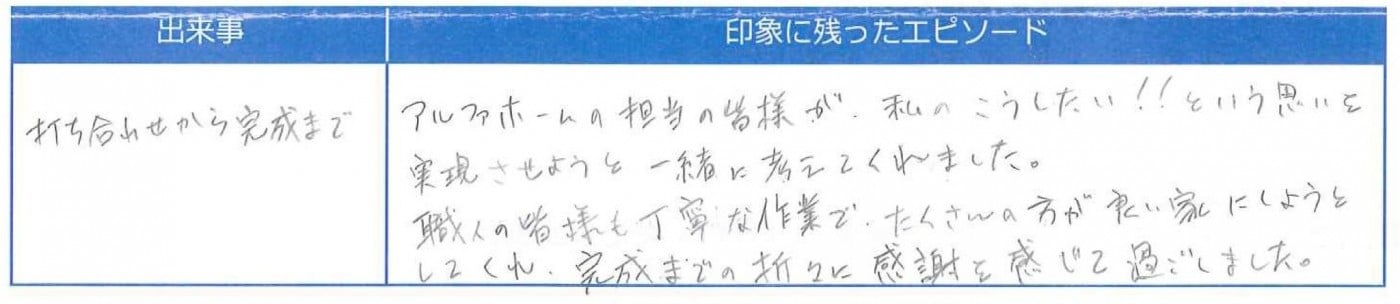 出来事
印象に残ったエピソード
打ち合わせから完成まで
アルファホームの担当の皆様が、私のこうしたい!!という思いを
実現させようと一緒に考えてくれました。
職人の皆様も丁寧な作業で、たくさんの方が良い家にしようと
してくれ、完成までの折々に感謝を感じて過ごしました。